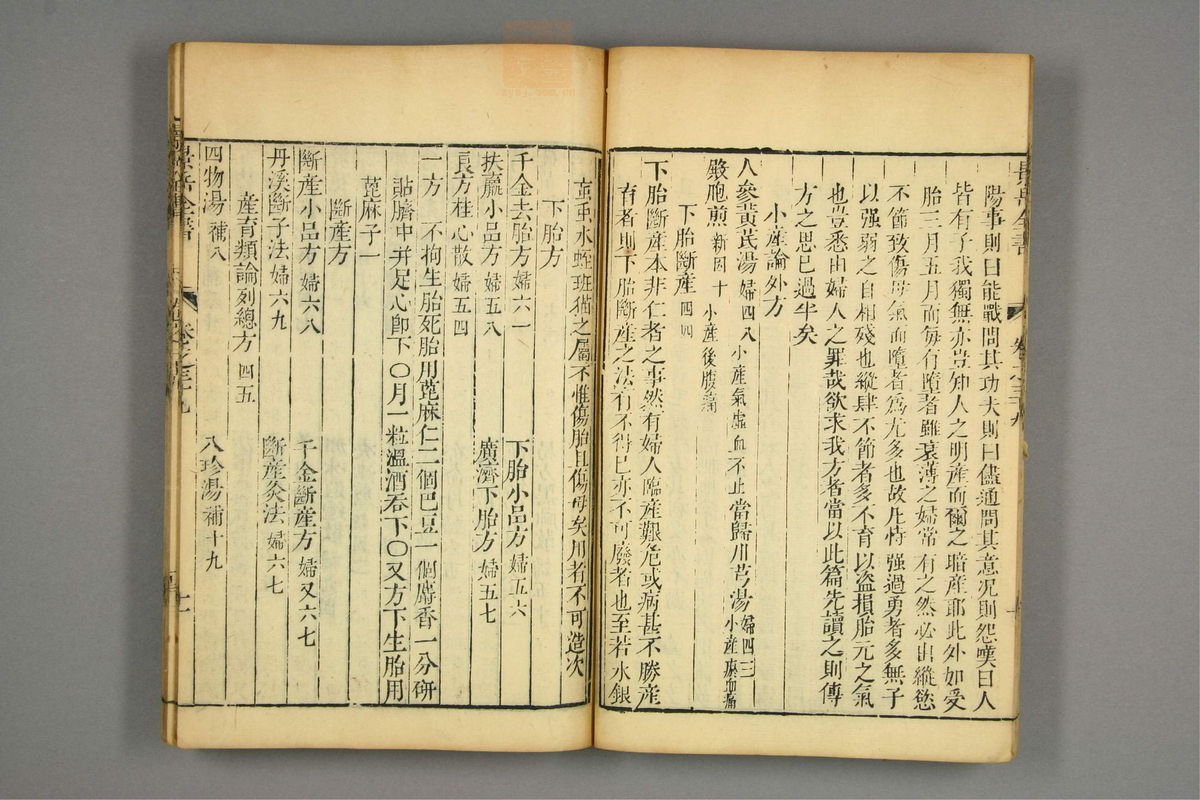 陽事則曰能戰問其功夫則曰儘通問其意况則怨嘆曰人
皆有子我獨無亦豈知人之明産而爾之暗産耶此外如受
胎三月五月而每有墮者雖衰薄之婦常有之然必由縱慾
不節致傷母氣而墮者爲尤多也故凡恃强過勇者多無子
以强弱之自相殘也縱肆不節者多不育以盗損胎元之氣
也豈悉由婦人之罪哉欲求我方者當以此篇先讀之則傳
方之思已過半矣
小産論外方
人參黃芪湯 婦四八 小産氣虚血不止 當歸川芎湯 婦四三 小産瘀血痛
殿胞煎 新因十 小産後腹痛
下胎斷産 四四
下胎斷産本非仁者之事然有婦人臨産艱危或病甚不勝産
育者則下胎斷産之法有不得已亦不可廢者也至若水銀
䖟虫水蛭班猫之屬不惟傷胎且傷母矣用者不可造次
下胎方
千金去胎方 婦六一 下胎小品方 婦五六
扶羸小品方 婦五八 廣濟下胎方 婦五七
良方桂心散 婦五四
一方 不拘生胎死胎用蓖麻仁二個巴豆一個麝香一分研
貼臍中并足心即下〇月一粒溫酒吞下〇又方下生胎用
蓖麻子一
斷産方
斷産小品方 婦六八 千金斷産方 婦又六七
丹溪斷子法 婦六九 斷産灸法 婦六七
産育類論列總方 四五
四物湯 補八 八珍湯 補十九
景岳全書